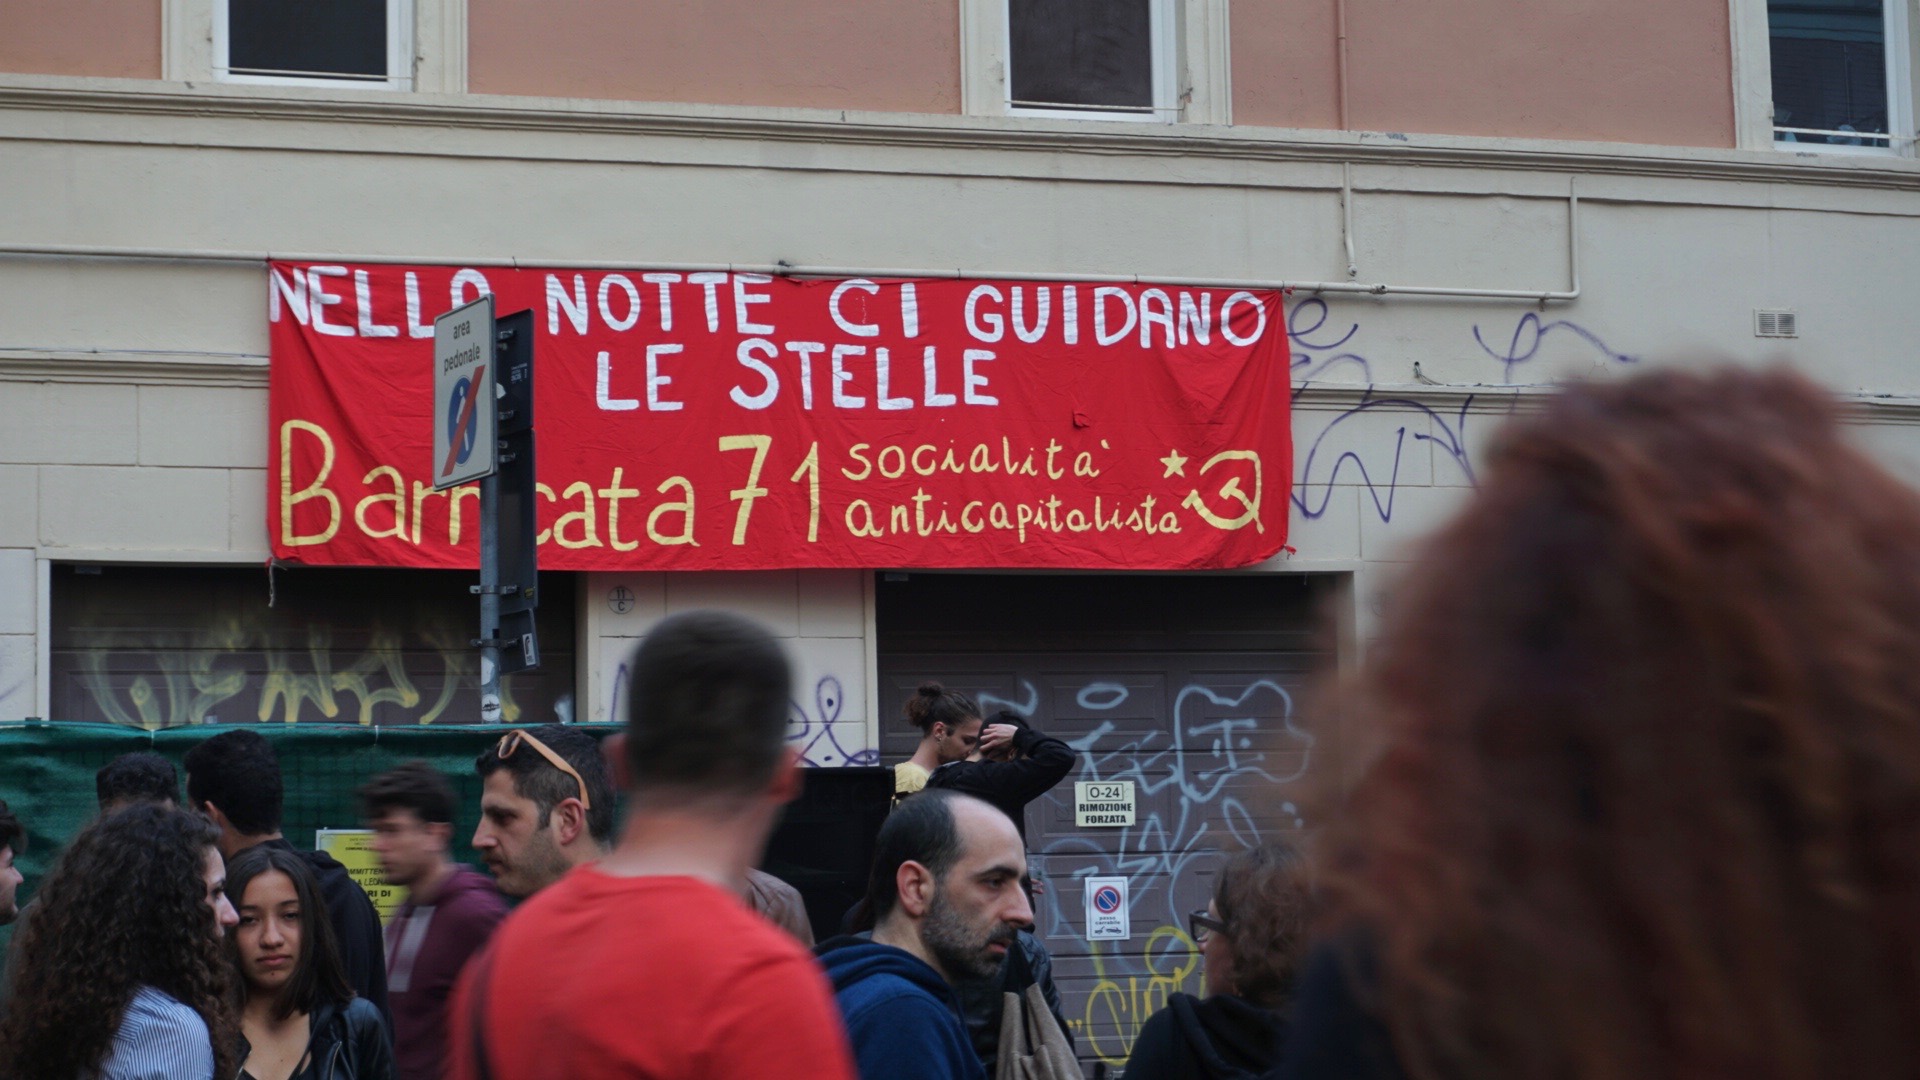 NELLA NOTTE CI GUIDANO
LE STELLE
Barricata 71
socialità
anticapitalista
area
pedonale
11
C
0-24
RIMOZIONE
FORZATA
passo
carrabile